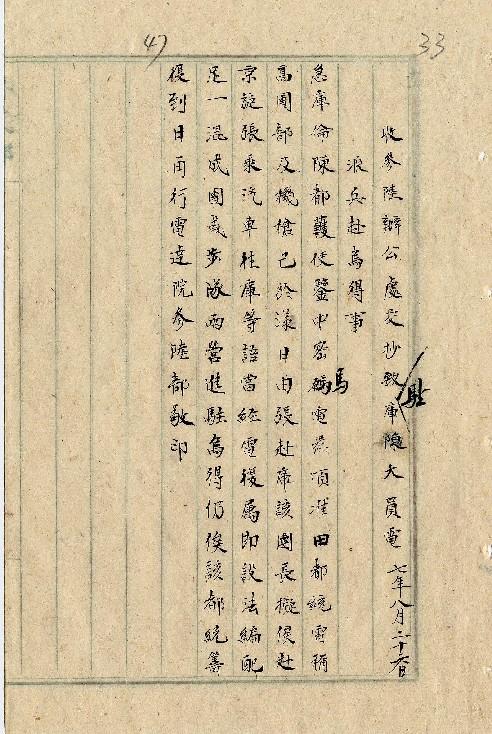 33
47
收參陸辦公處交抄致駐庫陳大員電 七年八月二十六日
派兵赴烏得事
急庫倫陳都護使鑒中密禡電悉頃准田都統電稱
馬
高團部及機槍已於漾日由張赴滂該團長擬俟赴
京旋張乘汽車往庫等語當經電復屬即設法編配
足一混成團或步隊兩營進駐烏得仍俟該都統籌
復到日再行電達院參陸部敬印